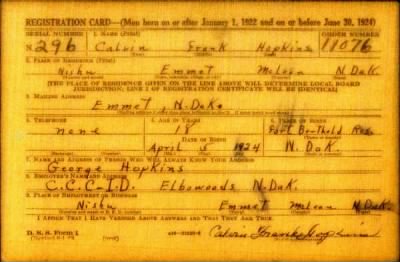 REGISTRATION CARD—(Men born on or after January 1, 1922 and on or before June 30, 1924)
SERIAL NUMBER 1. NAME (Print) ORDER NUMBER
N 296 Calvin Frank Hopkins 11076
2. PLACE OF RESIDENCE (Print)
Nishu Emmet McLean N.Dak.
[THE PLACE OF RESIDENCE GIVEN ON THE LINE ABOVE WILL DETERMINE LOCAL BOARD
JURISDICTION; LINE 2 OF REGISTRATION CERTIFICATE WILL BE IDENTICAL]
3. MAILING ADDRESS
Emmet, N.Dak.
4. TELEPHONE 5. AGE IN YEARS 6. PLACE OF BIRTH
none 18 Fort Berthold Res.
DATE OF BIRTH
April 5 1924 N. Dak.
7. NAME AND ADDRESS OF PERSON WHO WILL ALWAYS KNOW YOUR ADDRESS
George Hopkins
8. EMPLOYER'S NAME AND ADDRESS
C.C.C-I.D. Elbowoods N.Dak.
9. PLACE OF EMPLOYMENT OR BUSINESS
Nishu Emmet McLean N.Dak.
I AFFIRM THAT I HAVE VERIFIED ABOVE ANSWERS AND THAT THEY ARE TRUE.
D. S. S. Form 1
Calvin Frank Hopkins